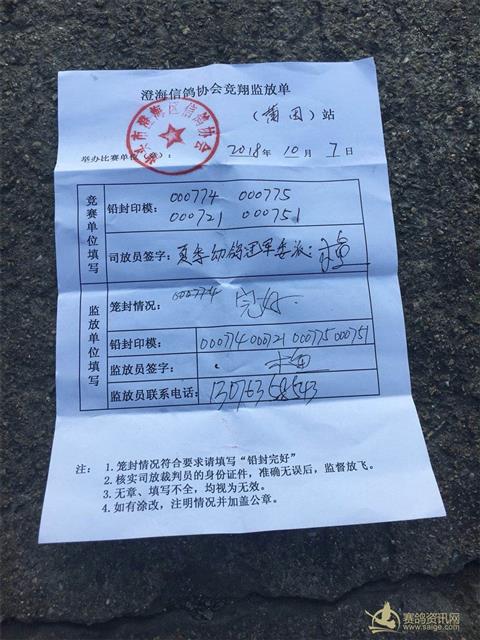 澄海信鸽协会竞翔监放单
(莆田)站
汕头市澄海区信鸽协会
举办比赛单位（章）： 2018年10月7日
竞赛单位填写
铅封印模： 000774 000775
000721 000751
司放员签字：
监放单位填写
笼封情况： 000774 完好
铅封印模： 000774 000721 000775 000751
监放员签字：
监放员联系电话：
注： 1. 笼封情况符合要求请填写“铅封完好”
2. 核实司放裁判员的身份证件，准确无误后，监督放飞。
3. 无章、填写不全，均视为无效。
4. 如有涂改，注明情况并加盖公章。
赛鸽资讯网
www.saige.com